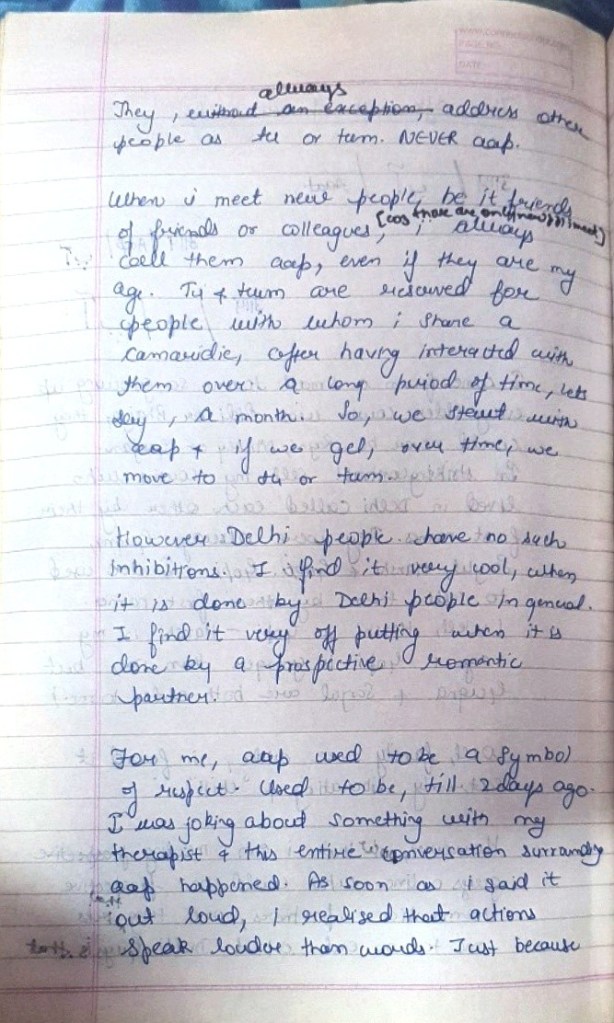 always
They, without an exception, address other
people as tu or tum. NEVER aap.
When i meet new people, be it friends
[cos those are only new ppl i meet]
of friends or colleagues, i always
call them aap, even if they are my
age. Tu & tum are reserved for
people with whom i share a
camaridie, after having interacted with
them over a long period of time, lets
say, a month. So, we start with
aap & if we gel, over time, we
move to tu or tum.
However Delhi people have no such
inhibitions. I find it very cool, when
it is done by Delhi people in general.
I find it very off putting when it is
done by a prospective romantic
partner.
For me, aap used to be a symbol
of respect. Used to be, till 2 days ago.
I was joking about something with my
therapist & this entire conversation surrounding
aap happened. As soon as i said it
out loud, i realised that actions
speak louder than words. Just because